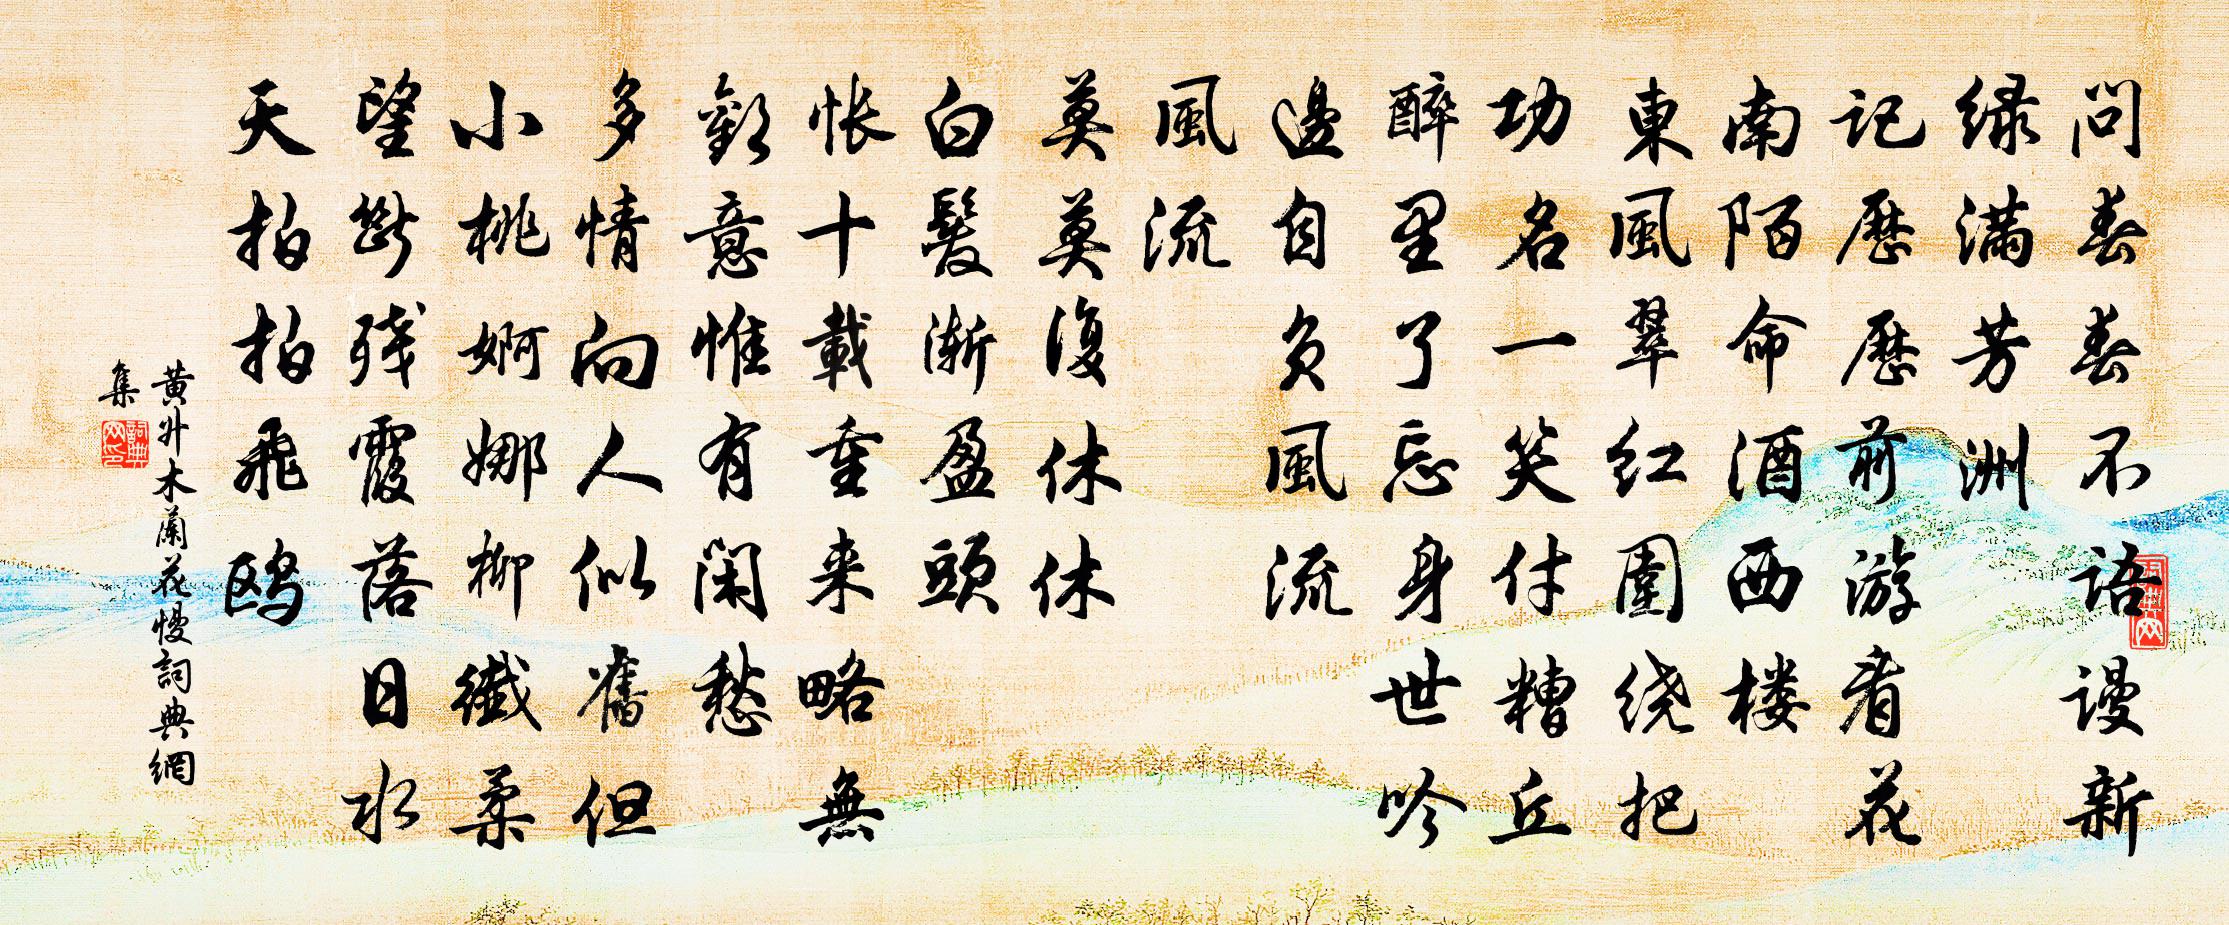 問春春不語謾新
緑满芳洲
记歷歷前游看花
南陌命酒西楼
東風翠红圍绕把
功名一笑付糟丘
醉里了忘身世吟
邊自负風流
風流
莫莫復休休
白髮渐盈頭
怅十載重来略無
歡意惟有闲愁
多情向人似舊但
小桃婀娜柳纖柔
望断残霞落日水
天拍拍飛鸥
黄升木蘭花慢詞典網
集